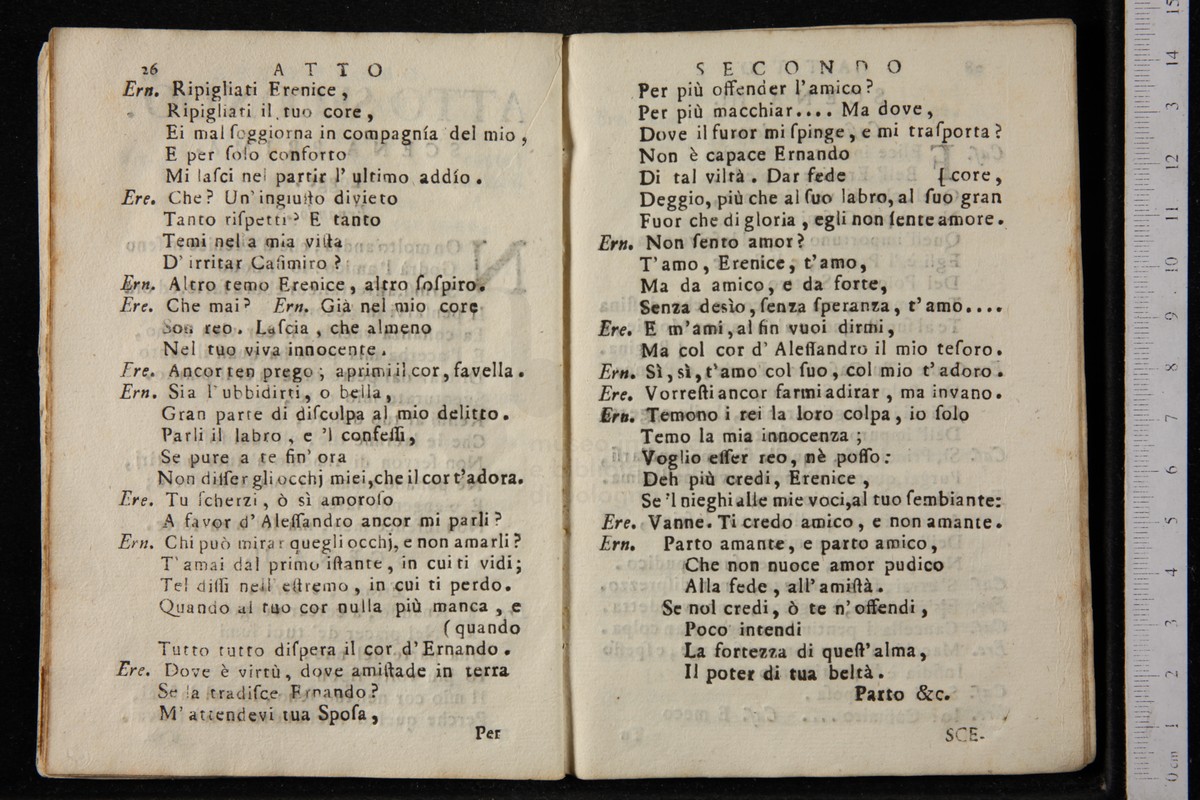 26 ATTO
Ern. Ripigliati Erenice,
Ripigliati il tuo core,
Ei mal ſoggiorna in compagnía del mio,
E per ſolo conforto
Mi laſci nel partir l' ultimo addío.
Ere. Che? Un' ingiuſto divieto
Tanto riſpetti? E tanto
Temi nel a mia viſta
D' irritar Caſimiro?
Ern. Altro temo Erenice, altro ſoſpiro.
Ere. Che mai? Ern. Già nel mio core
Son reo. Laſcia, che almeno
Nel tuo viva innocente.
Ere. Ancor ten prego; aprimi il cor, favella.
Ern. Sia l' ubbidirti, o bella,
Gran parte di diſcolpa al mio delitto.
Parli il labro, e 'l confeſſi,
Se pure a te fin' ora
Non diſſer gli occhj miei, che il cor t'adora.
Ere. Tu ſcherzi, ò sì amoroſo
A favor d' Aleſſandro ancor mi parli?
Ern. Chi può mirar quegli occhj, e non amarli?
T' amai dal primo iſtante, in cui ti vidi;
Tel diſſi nell' eſtremo, in cui ti perdo.
Quando al tuo cor nulla più manca, e
(quando
Tutto tutto diſpera il cor d' Ernando.
Ere. Dove è virtù, dove amiſtade in terra
Se la tradiſce Ernando?
M' attendevi tua Spoſa,
Per
SECONDO
Per più offender l'amico?
Per più macchiar.... Ma dove,
Dove il furor mi ſpinge, e mi traſporta?
Non è capace Ernando
Di tal viltà. Dar fede [core,
Deggio, più che al ſuo labro, al ſuo gran
Fuor che di gloria, egli non ſente amore.
Ern. Non ſento amor?
T'amo, Erenice, t'amo,
Ma da amico, e da forte,
Senza desìo, ſenza ſperanza, t'amo....
Ere. E m'ami, al fin vuoi dirmi,
Ma col cor d' Aleſſandro il mio teſoro.
Ern. Sì, sì, t'amo col ſuo, col mio t'adoro.
Ere. Vorreſti ancor farmi adirar, ma invano.
Ern. Temono i rei la loro colpa, io ſolo
Temo la mia innocenza;
Voglio eſſer reo, nè poſſo:
Deh più credi, Erenice,
Se 'l nieghi alle mie voci, al tuo ſembiante:
Ere. Vanne. Ti credo amico, e non amante.
Ern. Parto amante, e parto amico,
Che non nuoce amor pudico
Alla fede, all' amiſtà.
Se nol credi, ò te n' offendi,
Poco intendi
La fortezza di queſt' alma,
Il poter di tua beltà.
Parto &c.
SCE-